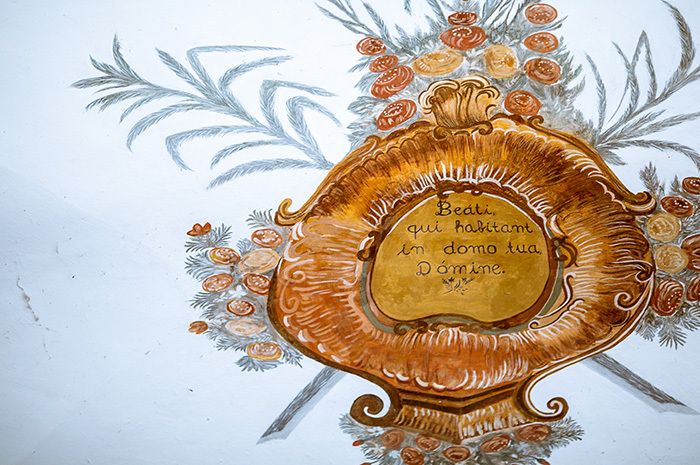 Beáti,
qui habitant
in domo tua,
Dómine.